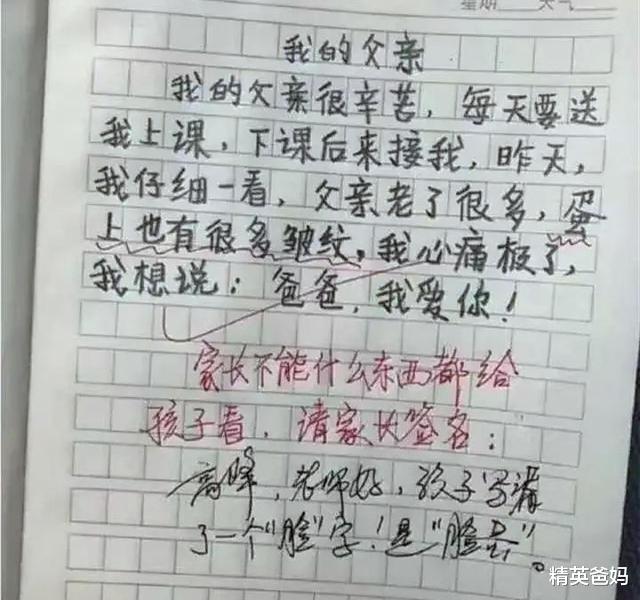 星期 天气
我的父亲
我的父亲很辛苦，每天要送
我上课，下课后来接我，昨天，
我仔细一看，父亲老了很多，蛋
上也有很多皱纹，我心痛极了，
我想说：爸爸，我爱你！
家长不能什么东西都给
孩子看，请家长签名：
高峰，老师好，孩子写漏
了一个“脸”字！是“脸蛋”。
精英爸妈